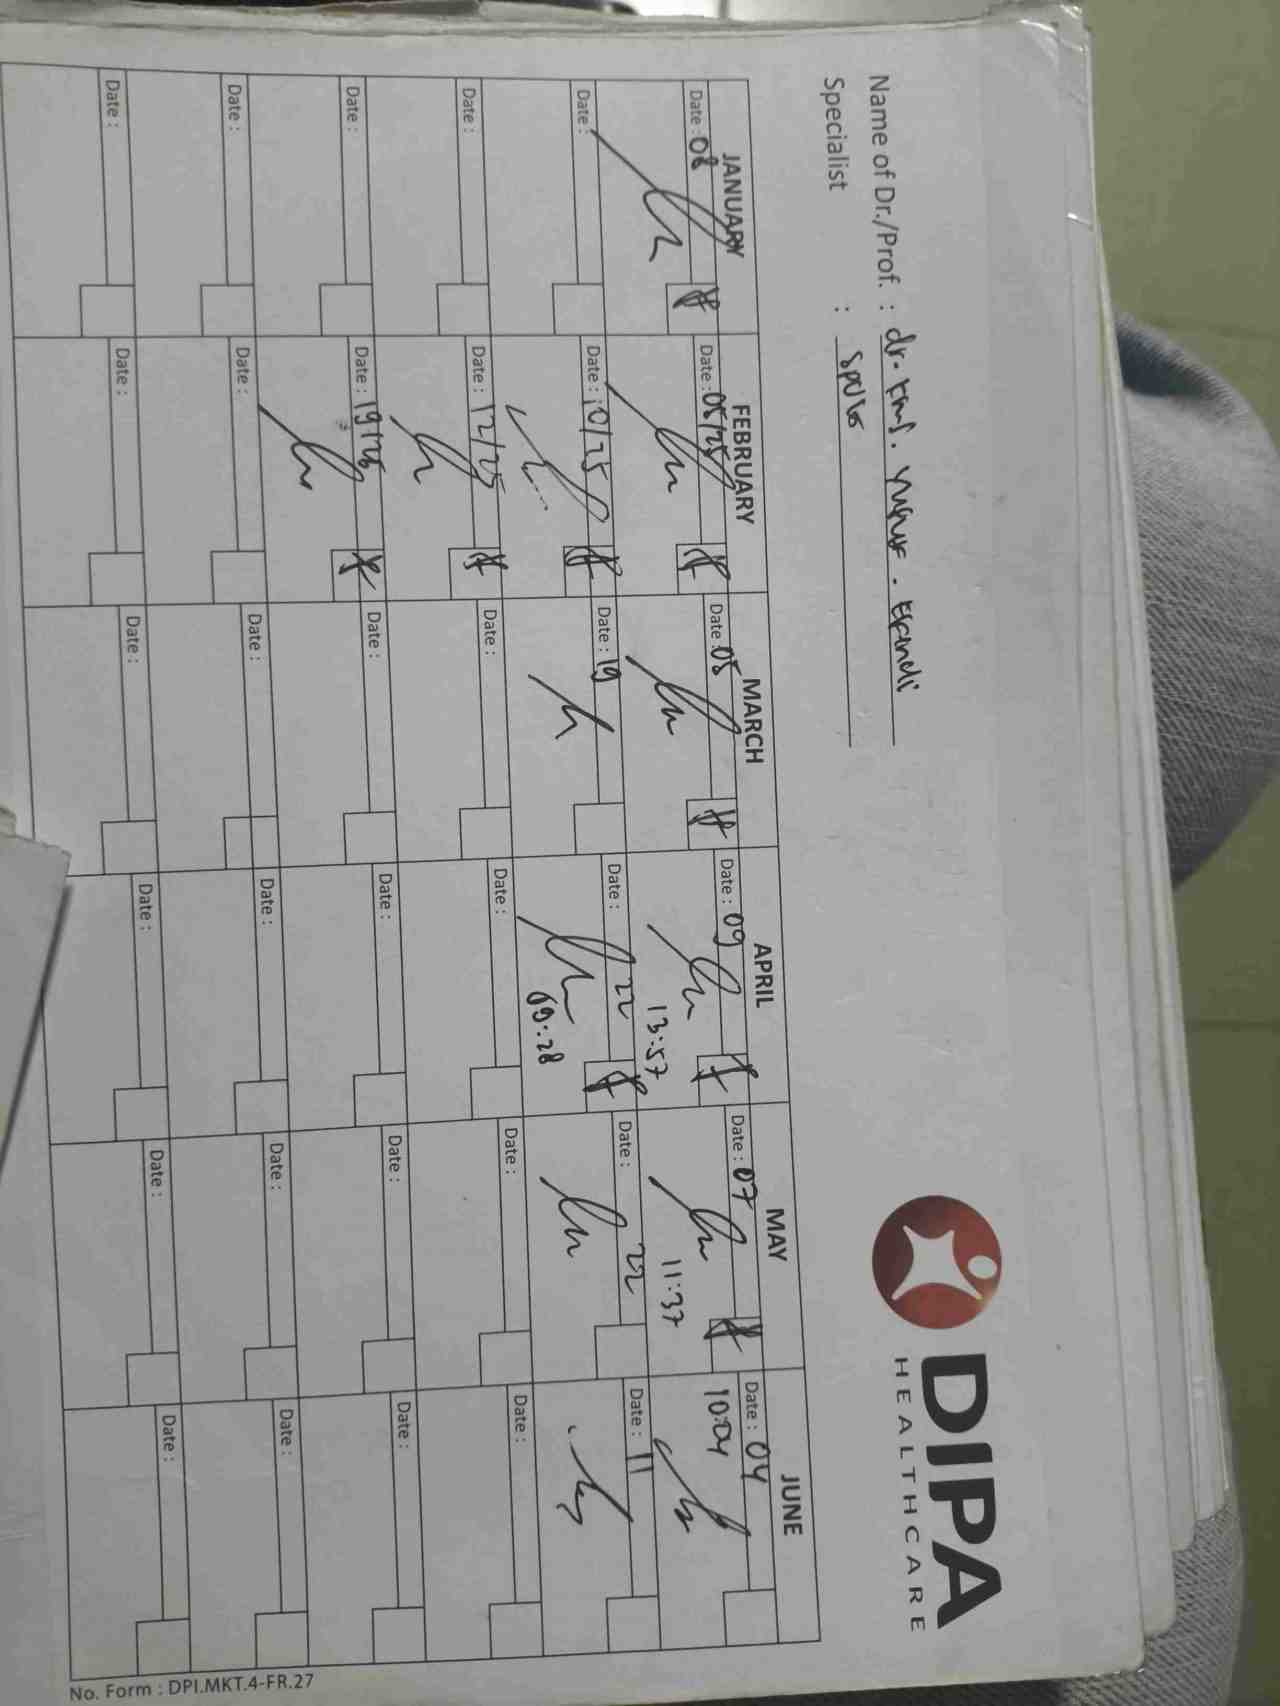 DIPA
HEALTHCARE
Name of Dr./Prof. : dr. kms. yusuf. effendi
Specialist :
JANUARY FEBRUARY MARCH APRIL MAY JUNE
Date : 08 Date : 05/25 Date : 05 Date : 09 Date : 07 Date : 04
13:57 11:37 10:04
Date : Date : 10/25 Date : 19 Date : 22 Date : 22 Date : 11
09:28
Date : Date : 12/25 Date : Date : Date : Date :
Date : Date : 19/25 Date : Date : Date : Date :
Date : Date : Date : Date : Date : Date :
Date : Date : Date : Date : Date : Date :
No. Form : DPI.MKT.4-FR.27